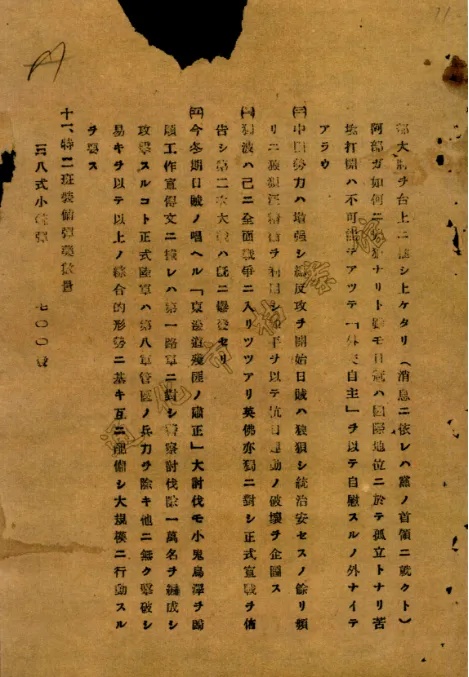 部大将ヲ台上ニ載シ上ケタリ（消息ニ依レハ黨ノ首領ニ戴クト）
阿部ガ如何ニ ナリト雖モ日寇ハ國際地位ニ於テ孤立トナリ苦
境打開ハ不可能デアツテ「外交自主」ヲ以テ自慰スルノ外ナイデ
アラウ
中国勢力ハ増强シ總反攻ヲ開始日賊ハ狼狽シ統治安セスノ餘リ頻
リニ 和平ヲ以テ抗日運動ノ破壞ヲ企圖ス
對波ハ已ニ全面戰爭ニ入リツツアリ英佛亦獨ニ對シ正式宣戰ヲ佈
告シ第二次大戰ハ既ニ爆發セリ
今冬期日賊ノ唱ヘル「東邊道殘匪ノ肅正」大討伐モ小鬼烏澤ヲ
工作宣傳文ニ據レハ第一路軍ニ對シ警察討伐隊一萬名ヲ編成シ
攻擊スルコト正式陸軍ハ第八軍管區ノ兵力ヲ除キ他ニ無ク擊破シ
易キヲ以テ以上ノ綜合的形勢ニ基キ互ニ配備シ大規模ニ行動スル
ヲ要ス
十一、特二班裝備彈藥數量
三八式小銃彈 七〇〇發